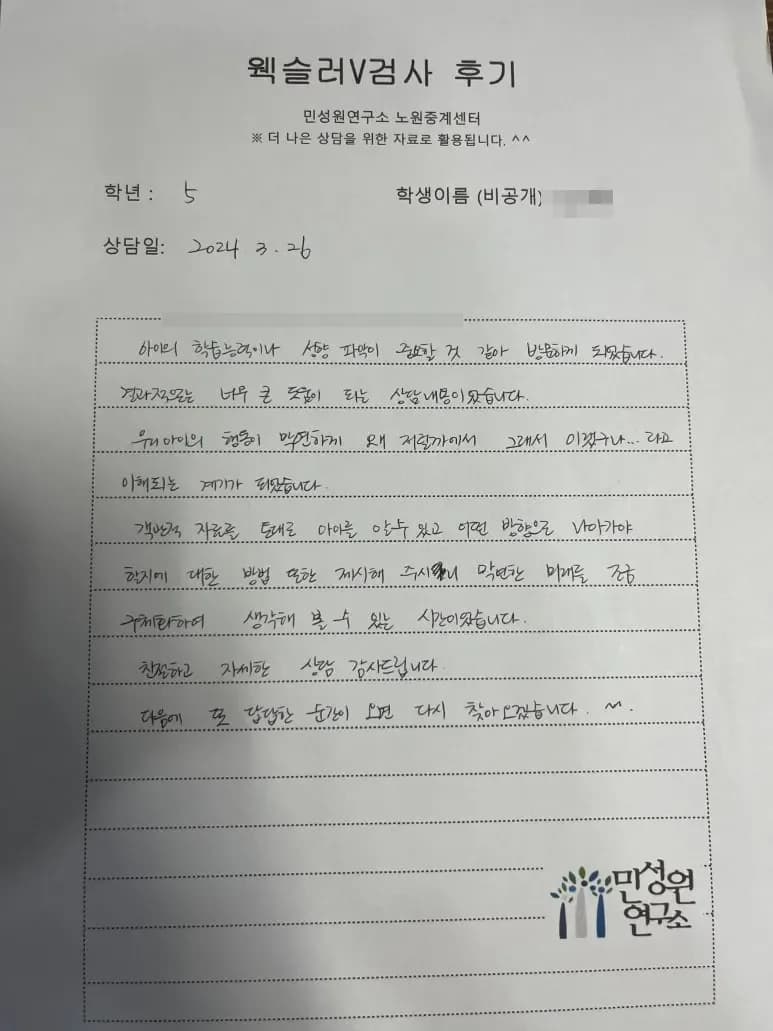 웩슬러V검사 후기
민성원연구소 노원중계센터
※ 더 나은 상담을 위한 자료로 활용됩니다. ^^
학년 : 5 학생이름 (비공개)
상담일: 2024 3. 26
아이의 학습능력이나 성향 파악이 중요할 것 같아 방문하게 되었습니다.
결과적으로는 너무 큰 도움이 되는 상담내용이었습니다.
우리아이의 행동이 막연하게 왜 저럴까에서 그래서 이랬구나... 라고
이해되는 계기가 되었습니다.
객관적 자료를 토대로 아이를 알수 있고 어떤 방향으로 나아가야
할지에 대한 방법 또한 제시해 주시니 막연한 미래를 조금
구체화하여 생각해 볼 수 있는 시간이었습니다.
친절하고 자세한 상담 감사드립니다.
다음에 또 답답한 순간이 오면 다시 찾아오겠습니다. ^^.
민성원
연구소